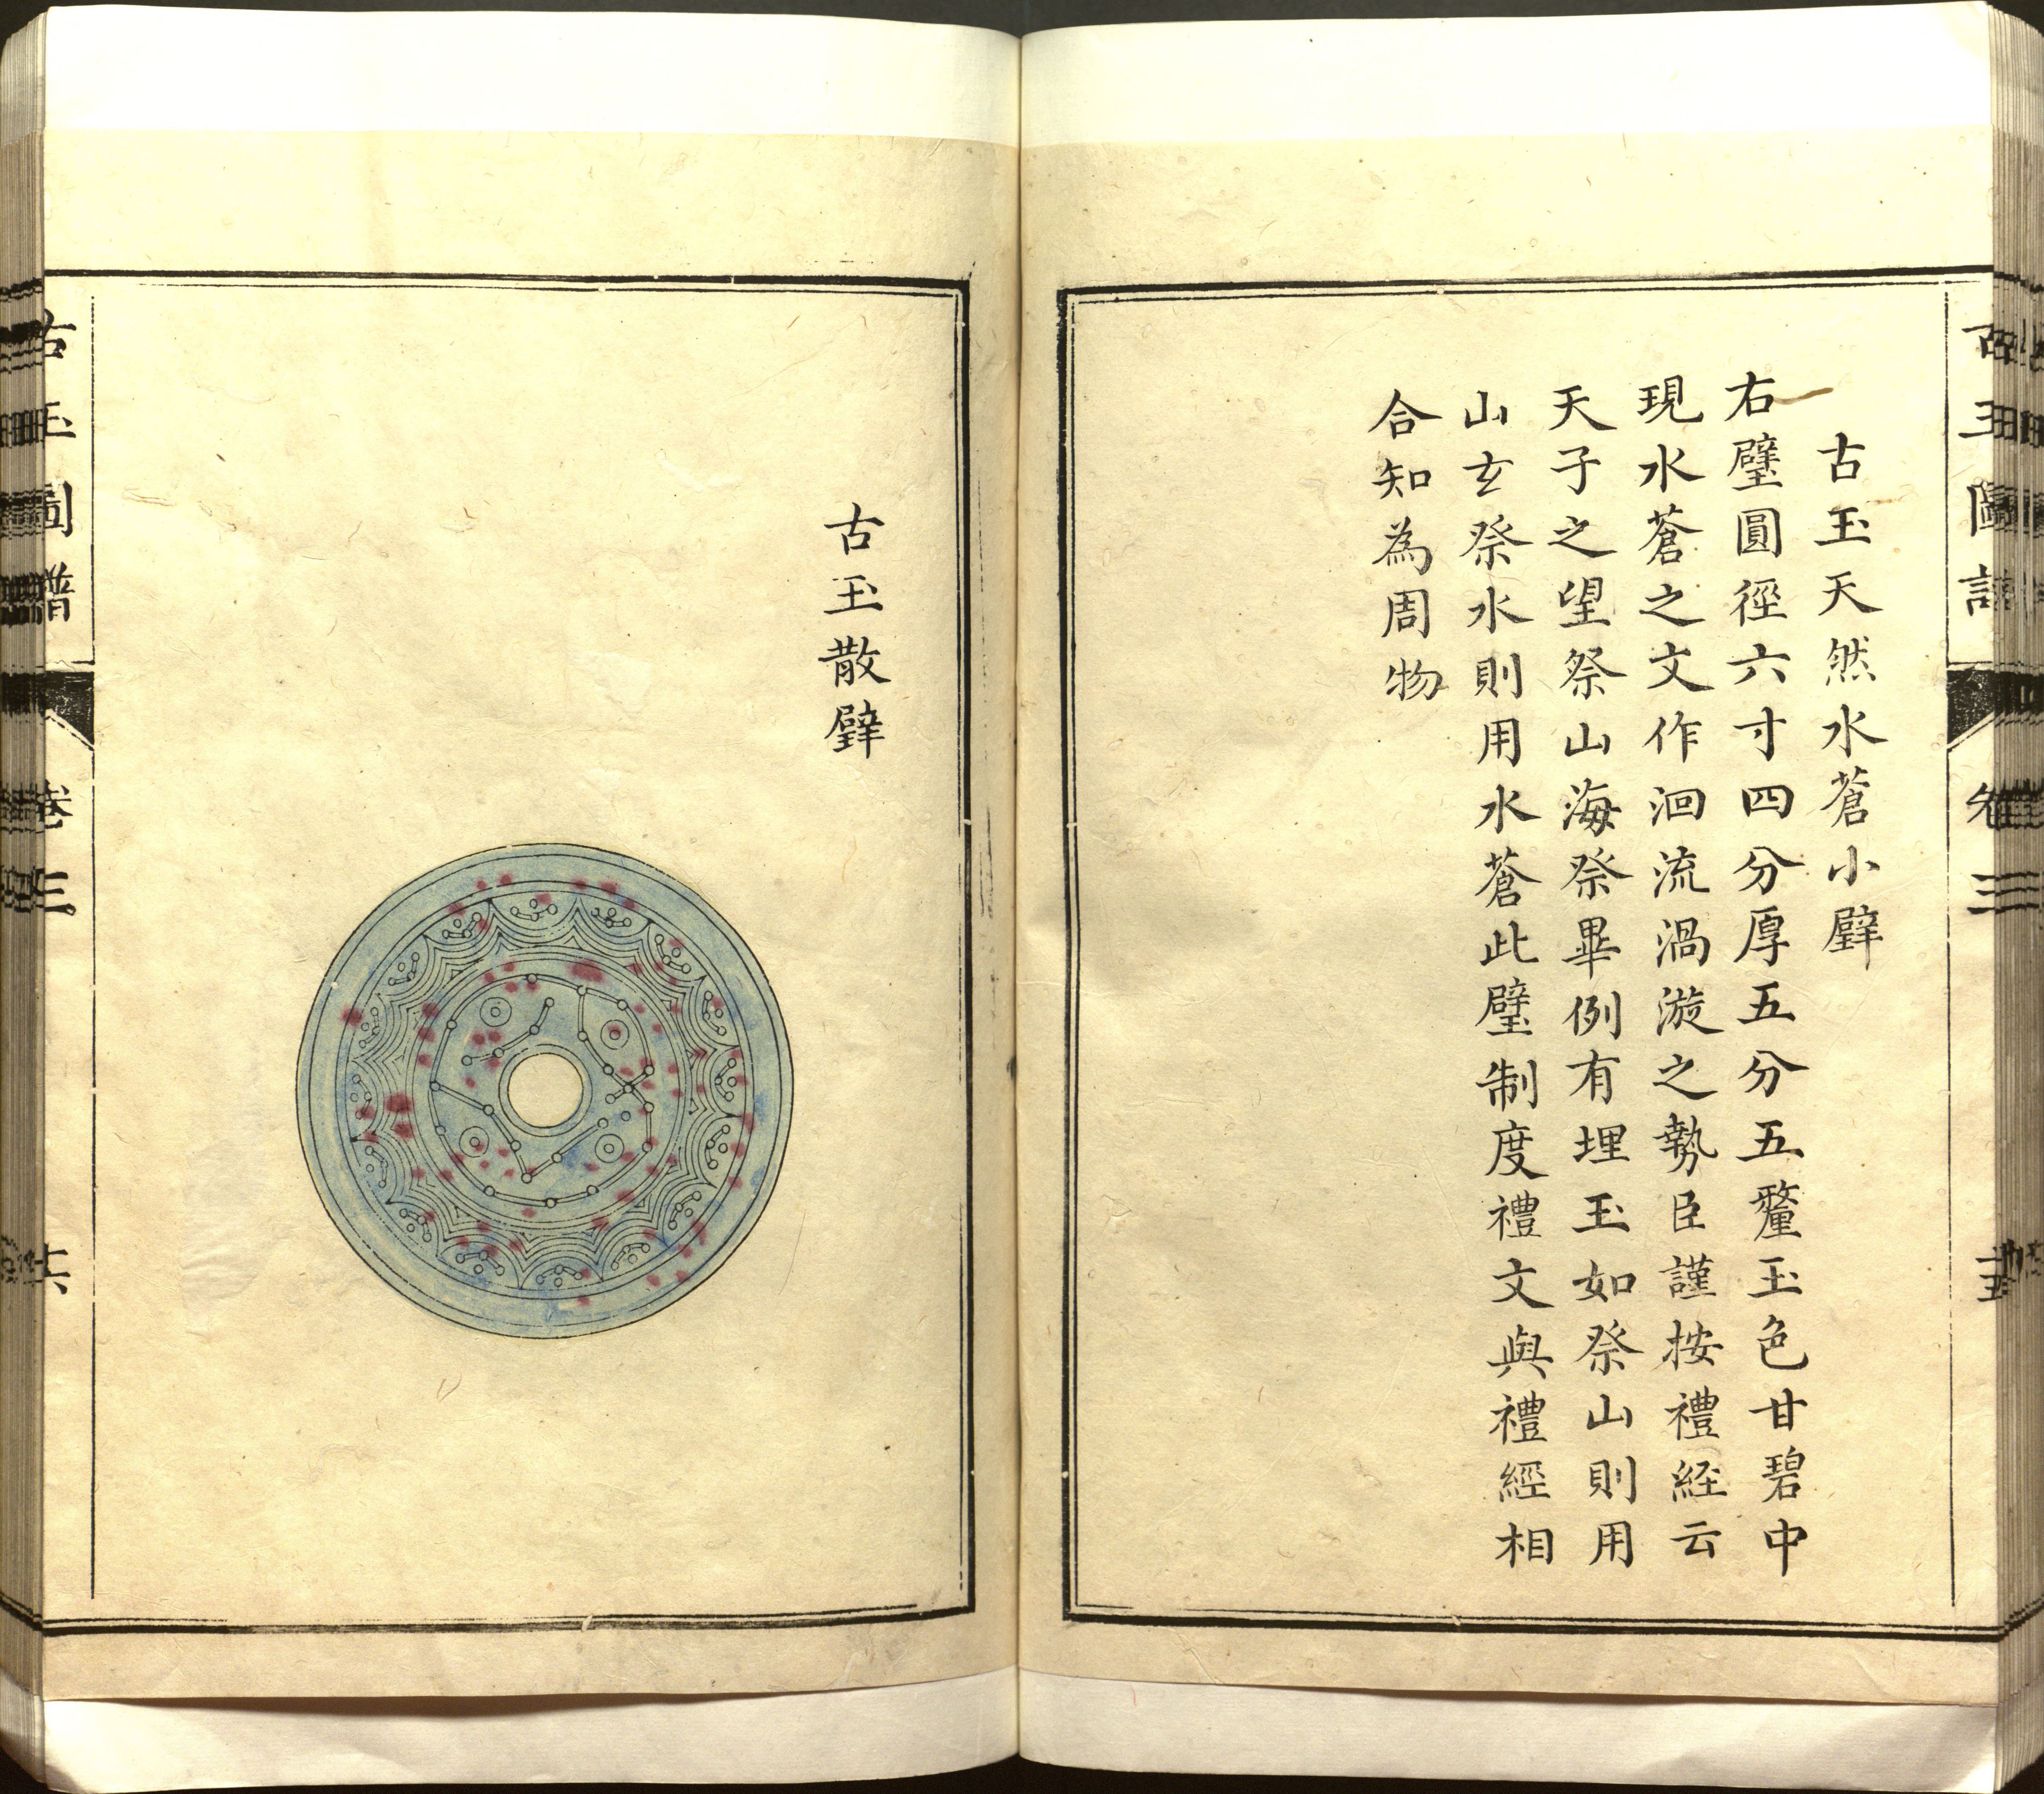 古玉圖譜 卷三 十五
古玉天然水蒼小璧
右璧圓徑六寸四分厚五分五釐玉色甘碧中
現水蒼之文作洄流渦漩之勢臣謹按禮経云
天子之望祭山海祭畢例有埋玉如祭山則用
山玄祭水則用水蒼此璧制度禮文與禮經相
合知為周物
古玉散璧
古玉圖譜 卷三 十六